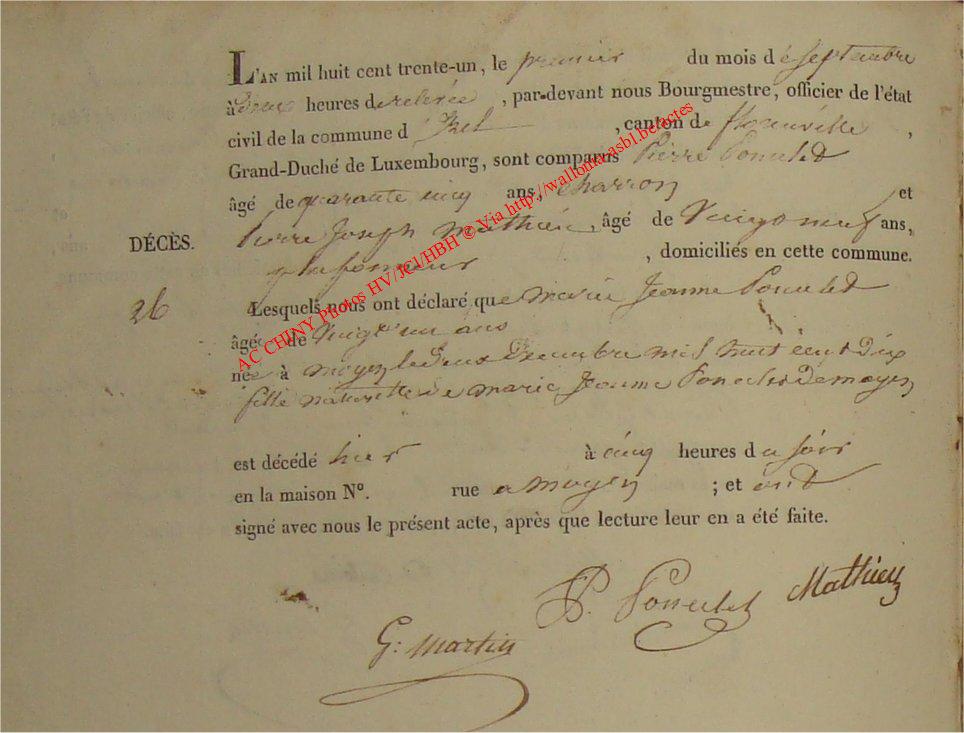 L'AN mil huit cent trente-un, le premier du mois de septembre
à deux heures de relevée, par-devant nous Bourgmestre, officier de l'état
civil de la commune d'Izel, canton de florenville,
Grand-Duché de Luxembourg, sont comparus Pierre Poncelet
âgé de quarante cinq ans, charron et
DÉCÈS. Pierre Joseph Mathieu, âgé de vingt neuf ans,
plafonneur, domiciliés en cette commune.
26 Lesquels nous ont déclaré que marie Jeanne Poncelet
âgée de vingt un ans
née à moyen le deux Decembre mil huit cent dix
fille naturelle de marie Jeanne Poncelet de moyen
est décédé hier à cinq heures du soir
en la maison N°. rue a moyen ; et ont
signé avec nous le présent acte, après que lecture leur en a été faite.
P. Poncelet Mathieu
G: Martin
AC CHINY Photos HV/JCl/HBH © Via http://wallonia.asbl.be/actes